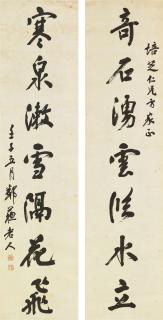 培芝仁兄方家正
奇石湧雲從水立
寒泉漱雪隔花飛
壬子五月鄭蘇老人